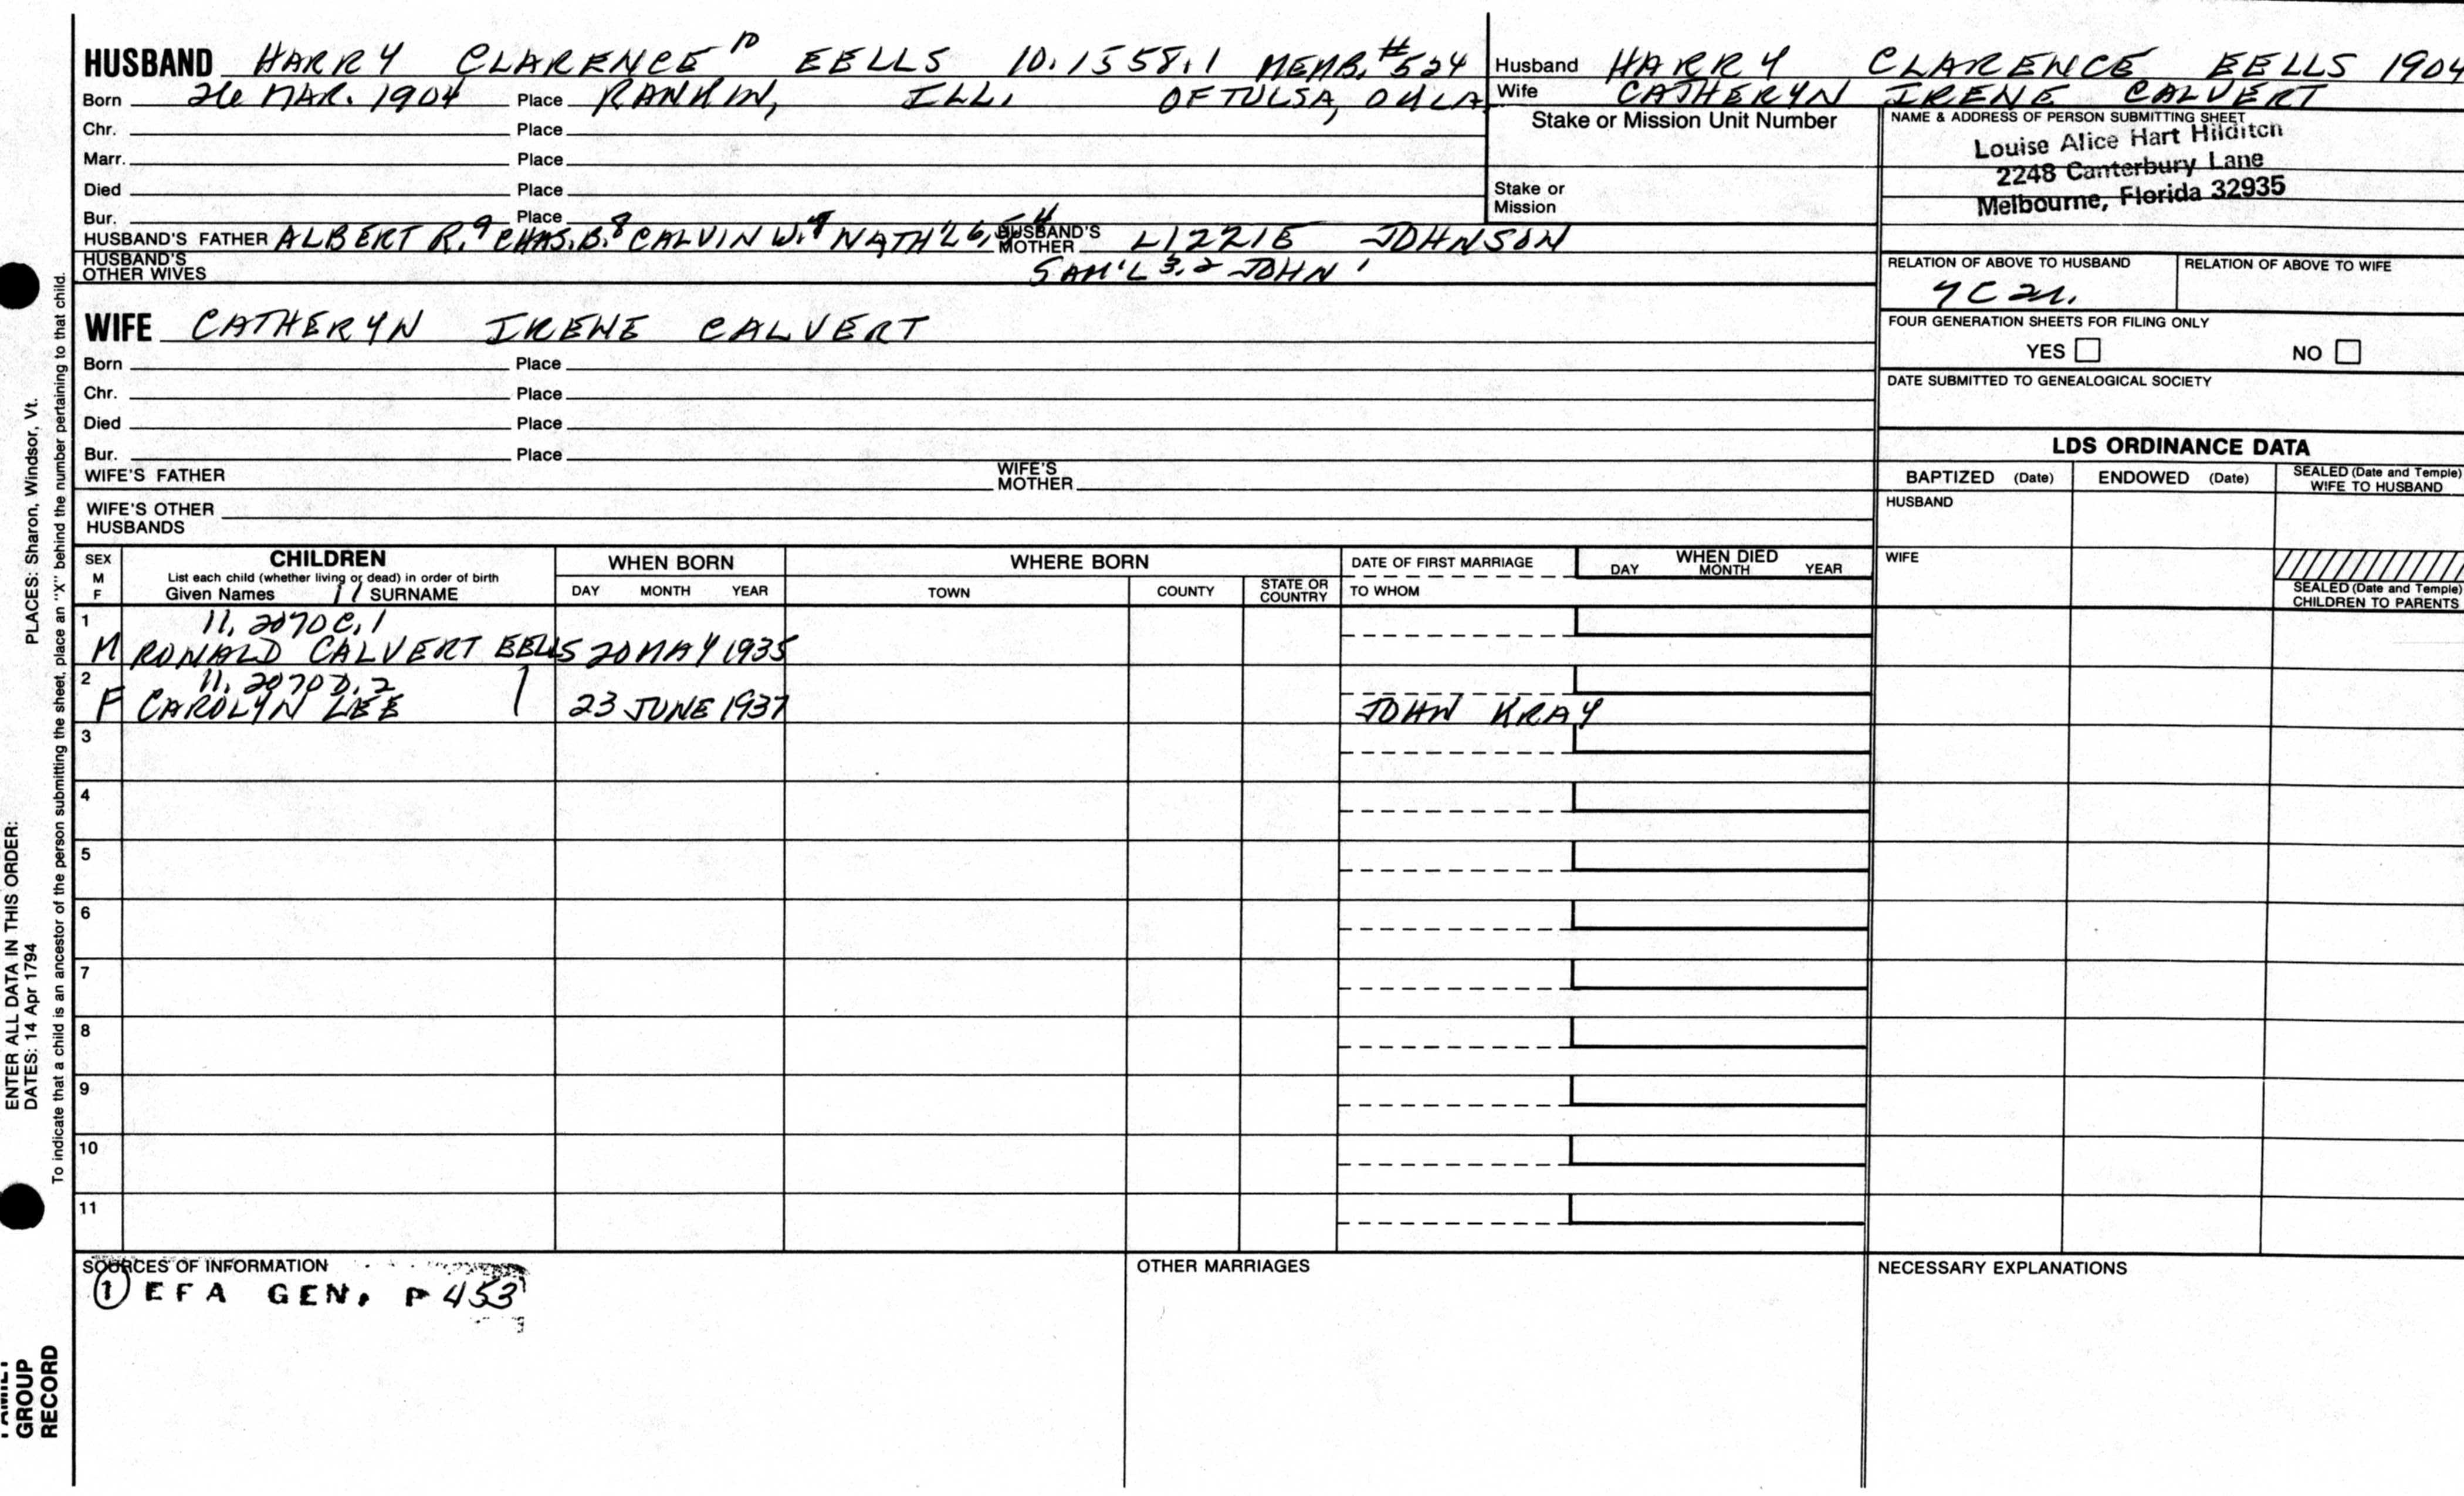 HUSBAND HARRY CLARENCE 10 EELLS 10.1558.1 MEMB. #524
Born 26 MAR. 1904 Place RANKIN, ILL. OF TULSA, OKLA
Chr. Place
Marr. Place
Died Place
Bur. Place
HUSBAND'S FATHER ALBERT R.9 CHAS. B.8 CALVIN W.7 NATH'L 6,5,4 HUSBAND'S MOTHER LIZZIE JOHNSON
HUSBAND'S OTHER WIVES SAM'L 3,2 JOHN 1
Husband HARRY CLARENCE EELLS 1904
Wife CATHERYN IRENE CALVERT
Stake or Mission Unit Number
Stake or
Mission
NAME & ADDRESS OF PERSON SUBMITTING SHEET
Louise Alice Hart Hilditch
2248 Canterbury Lane
Melbourne, Florida 32935
RELATION OF ABOVE TO HUSBAND RELATION OF ABOVE TO WIFE
7C
FOUR GENERATION SHEETS FOR FILING ONLY
YES NO
DATE SUBMITTED TO GENEALOGICAL SOCIETY
WIFE CATHERYN IRENE CALVERT
Born Place
Chr. Place
Died Place
Bur. Place
WIFE'S FATHER WIFE'S MOTHER
WIFE'S OTHER
HUSBANDS
LDS ORDINANCE DATA
BAPTIZED (Date) ENDOWED (Date) SEALED (Date and Temple) WIFE TO HUSBAND
HUSBAND
WIFE
SEALED (Date and Temple)
CHILDREN TO PARENTS
SEX M F
CHILDREN
List each child (whether living or dead) in order of birth
Given Names 11 SURNAME
WHEN BORN
DAY MONTH YEAR
WHERE BORN
TOWN COUNTY STATE OR COUNTRY
DATE OF FIRST MARRIAGE
TO WHOM
WHEN DIED
DAY MONTH YEAR
1 11.2070C.1
M RONALD CALVERT EELLS 20 MAY 1935
2 11.2070D.2
F CAROLYN LEE 23 JUNE 1937 JOHN KRAY
3
4
5
6
7
8
9
10
11
SOURCES OF INFORMATION
① EFA GEN. P 453
OTHER MARRIAGES
NECESSARY EXPLANATIONS
ENTER ALL DATA IN THIS ORDER:
DATES: 14 Apr 1794 PLACES: Sharon, Windsor, Vt.
To indicate that a child is an ancestor of the person submitting the sheet, place an "X" behind the number pertaining to that child.
FAMILY
GROUP
RECORD